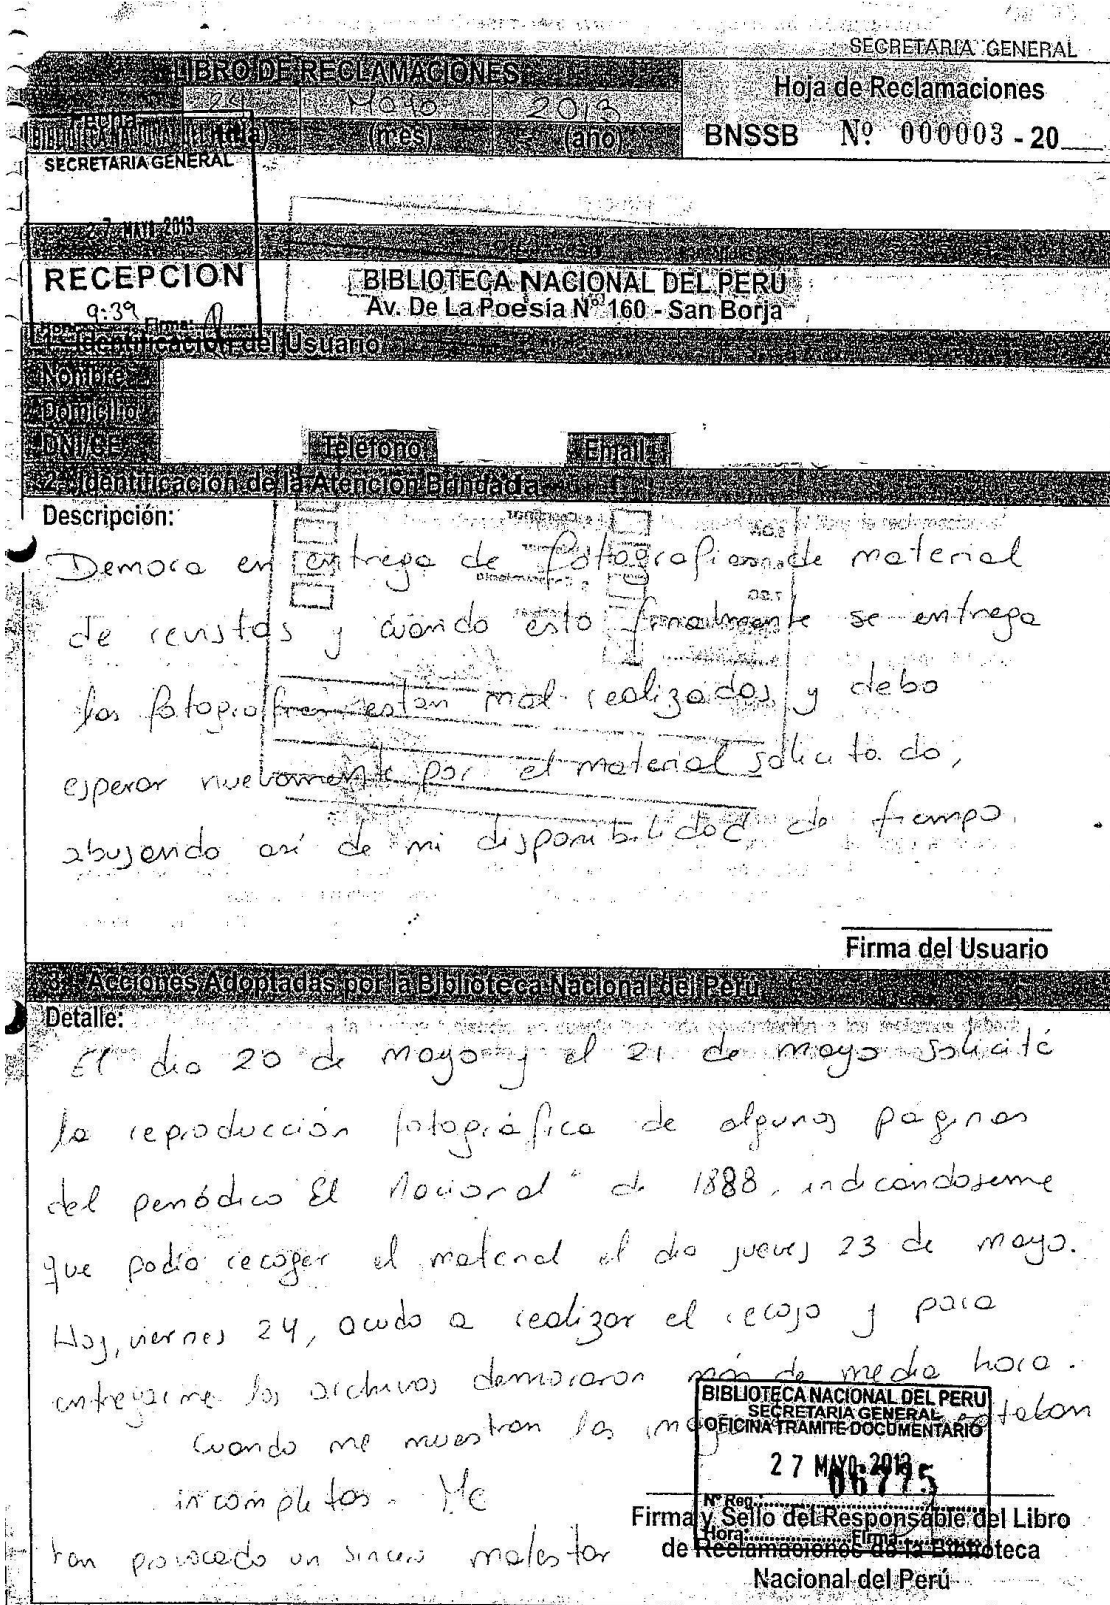 SECRETARIA GENERAL
LIBRO DE RECLAMACIONES
Hoja de Reclamaciones
24 Mayo 2013
Fecha (mes) (año)
BNSSB Nº 000003 - 20
SECRETARIA GENERAL
27 MAYO 2013
RECEPCION
9:39
BIBLIOTECA NACIONAL DEL PERU
Av. De La Poesía Nº 160 - San Borja
1.- Identificación del Usuario
Nombre
Domicilio
DNI/CE Teléfono Email
2.- Identificación de la Atención Brindada
Descripción:
Demora en entrega de fotografias de material
de revistas y cuando esto finalmente se entrega
las fotografías están mal realizadas y debo
esperar nuevamente por el material solicitado,
abusando así de mi disponibilidad de tiempo.
Firma del Usuario
3.- Acciones Adoptadas por la Biblioteca Nacional del Perú
Detalle:
El dia 20 de mayo y el 21 de mayo solicité
la reproducción fotográfica de algunas páginas
del periódico "El Nacional" de 1888, indicandoseme
que podía recoger el material el dia jueves 23 de mayo.
Hoy, viernes 24, acudo a realizar el recojo y para
entregarme los archivos demoraron más de media hora.
Cuando me muestran las
incompletas. Me
han provocado un sincero malestar
BIBLIOTECA NACIONAL DEL PERU
SECRETARIA GENERAL
OFICINA TRAMITE DOCUMENTARIO
27 MAYO 2013
06775
Nº Reg.:
Hora: Firma:
Firma y Sello del Responsable del Libro
de Reclamaciones de la Biblioteca
Nacional del Perú